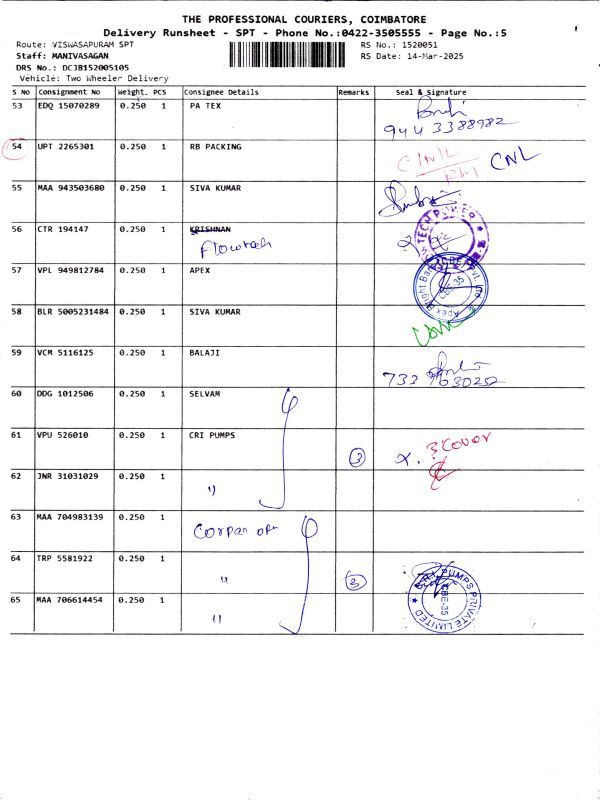 THE PROFESSIONAL COURIERS, COIMBATORE
Delivery Runsheet - SPT - Phone No.:0422-3505555 - Page No.:5
Route: VISWASAPURAM SPT
RS No.: 1520051
Staff: MANIVASAGAN
RS Date: 14-Mar-2025
DRS No.: DCJB152005105
Vehicle: Two Wheeler Delivery
S No Consignment No Weight. PCS Consignee Details Remarks Seal & Signature
53 EDQ 15070289 0.250 1 PA TEX
944 3388982
54 UPT 2265301 0.250 1 RB PACKING
CNL
55 MAA 943503680 0.250 1 SIVA KUMAR
56 CTR 194147 0.250 1 KRISHNAN
Flowtech
TECH POWER
57 VPL 949812784 0.250 1 APEX
CBE-35
58 BLR 5005231484 0.250 1 SIVA KUMAR
59 VCM 5116125 0.250 1 BALAJI
60 DDG 1012506 0.250 1 SELVAM
61 VPU 526010 0.250 1 CRI PUMPS
3 3 Cover
62 JNR 31031029 0.250 1 "
63 MAA 704983139 0.250 1
64 TRP 5581922 0.250 1 "
3
PUMPS PRIVATE LIMITED
CBE-35
65 MAA 706614454 0.250 1 "